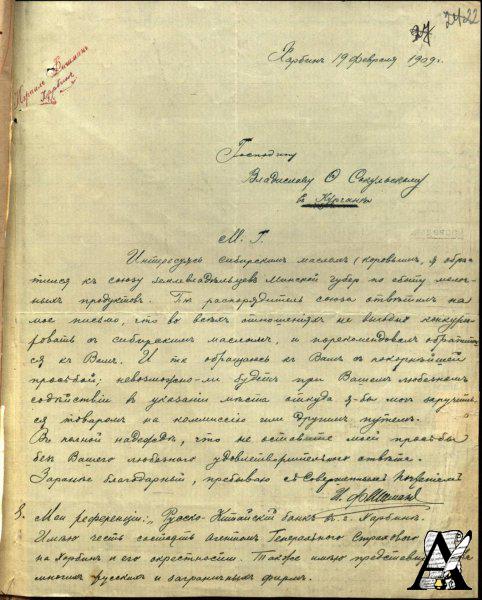 27 24 22
Харбинъ 19 февраля 1909 г.
Израиль
Харбинъ
Господину
Владиславу О Сокульскому
въ Курганѣ
М. Г.
Интересуясь сибирскимъ масломъ (коровьимъ, я обра-
тился къ союзу землевладѣльцевъ Минской губер по сбыту молоч-
ныхъ продуктовъ. Гг распорядитель союза отвѣтилъ на
мое письмо, что во всѣхъ отношеніяхъ не выгодно конкури-
ровать съ сибирскимъ масломъ, и порекомендовалъ обратить-
ся къ Вамъ. И я обращаюсь къ Вамъ съ покорнѣйшей
просьбой; невозможно-ли будетъ при Вашемъ любезномъ
содѣйствіи въ указаніи мѣста откуда я-бы могъ заручить-
ся товаромъ на коммиссію или другимъ путемъ.
Въ полной надеждѣ, что не оставите моей просьбы
безъ Вашего любезнаго удовлетворительнаго отвѣта.
Заранѣе благодарный, пребываю съ Совершеннымъ Почтеніемъ
И.
Мои референціи: Русско-Китайскій банкъ въ г. Харбинѣ.
Имѣю честь состоять Агентомъ Генеральнаго Страхового
на Харбинъ и его окрестности. Также имѣю представ
многихъ русскихъ и заграничныхъ фирмъ.
А